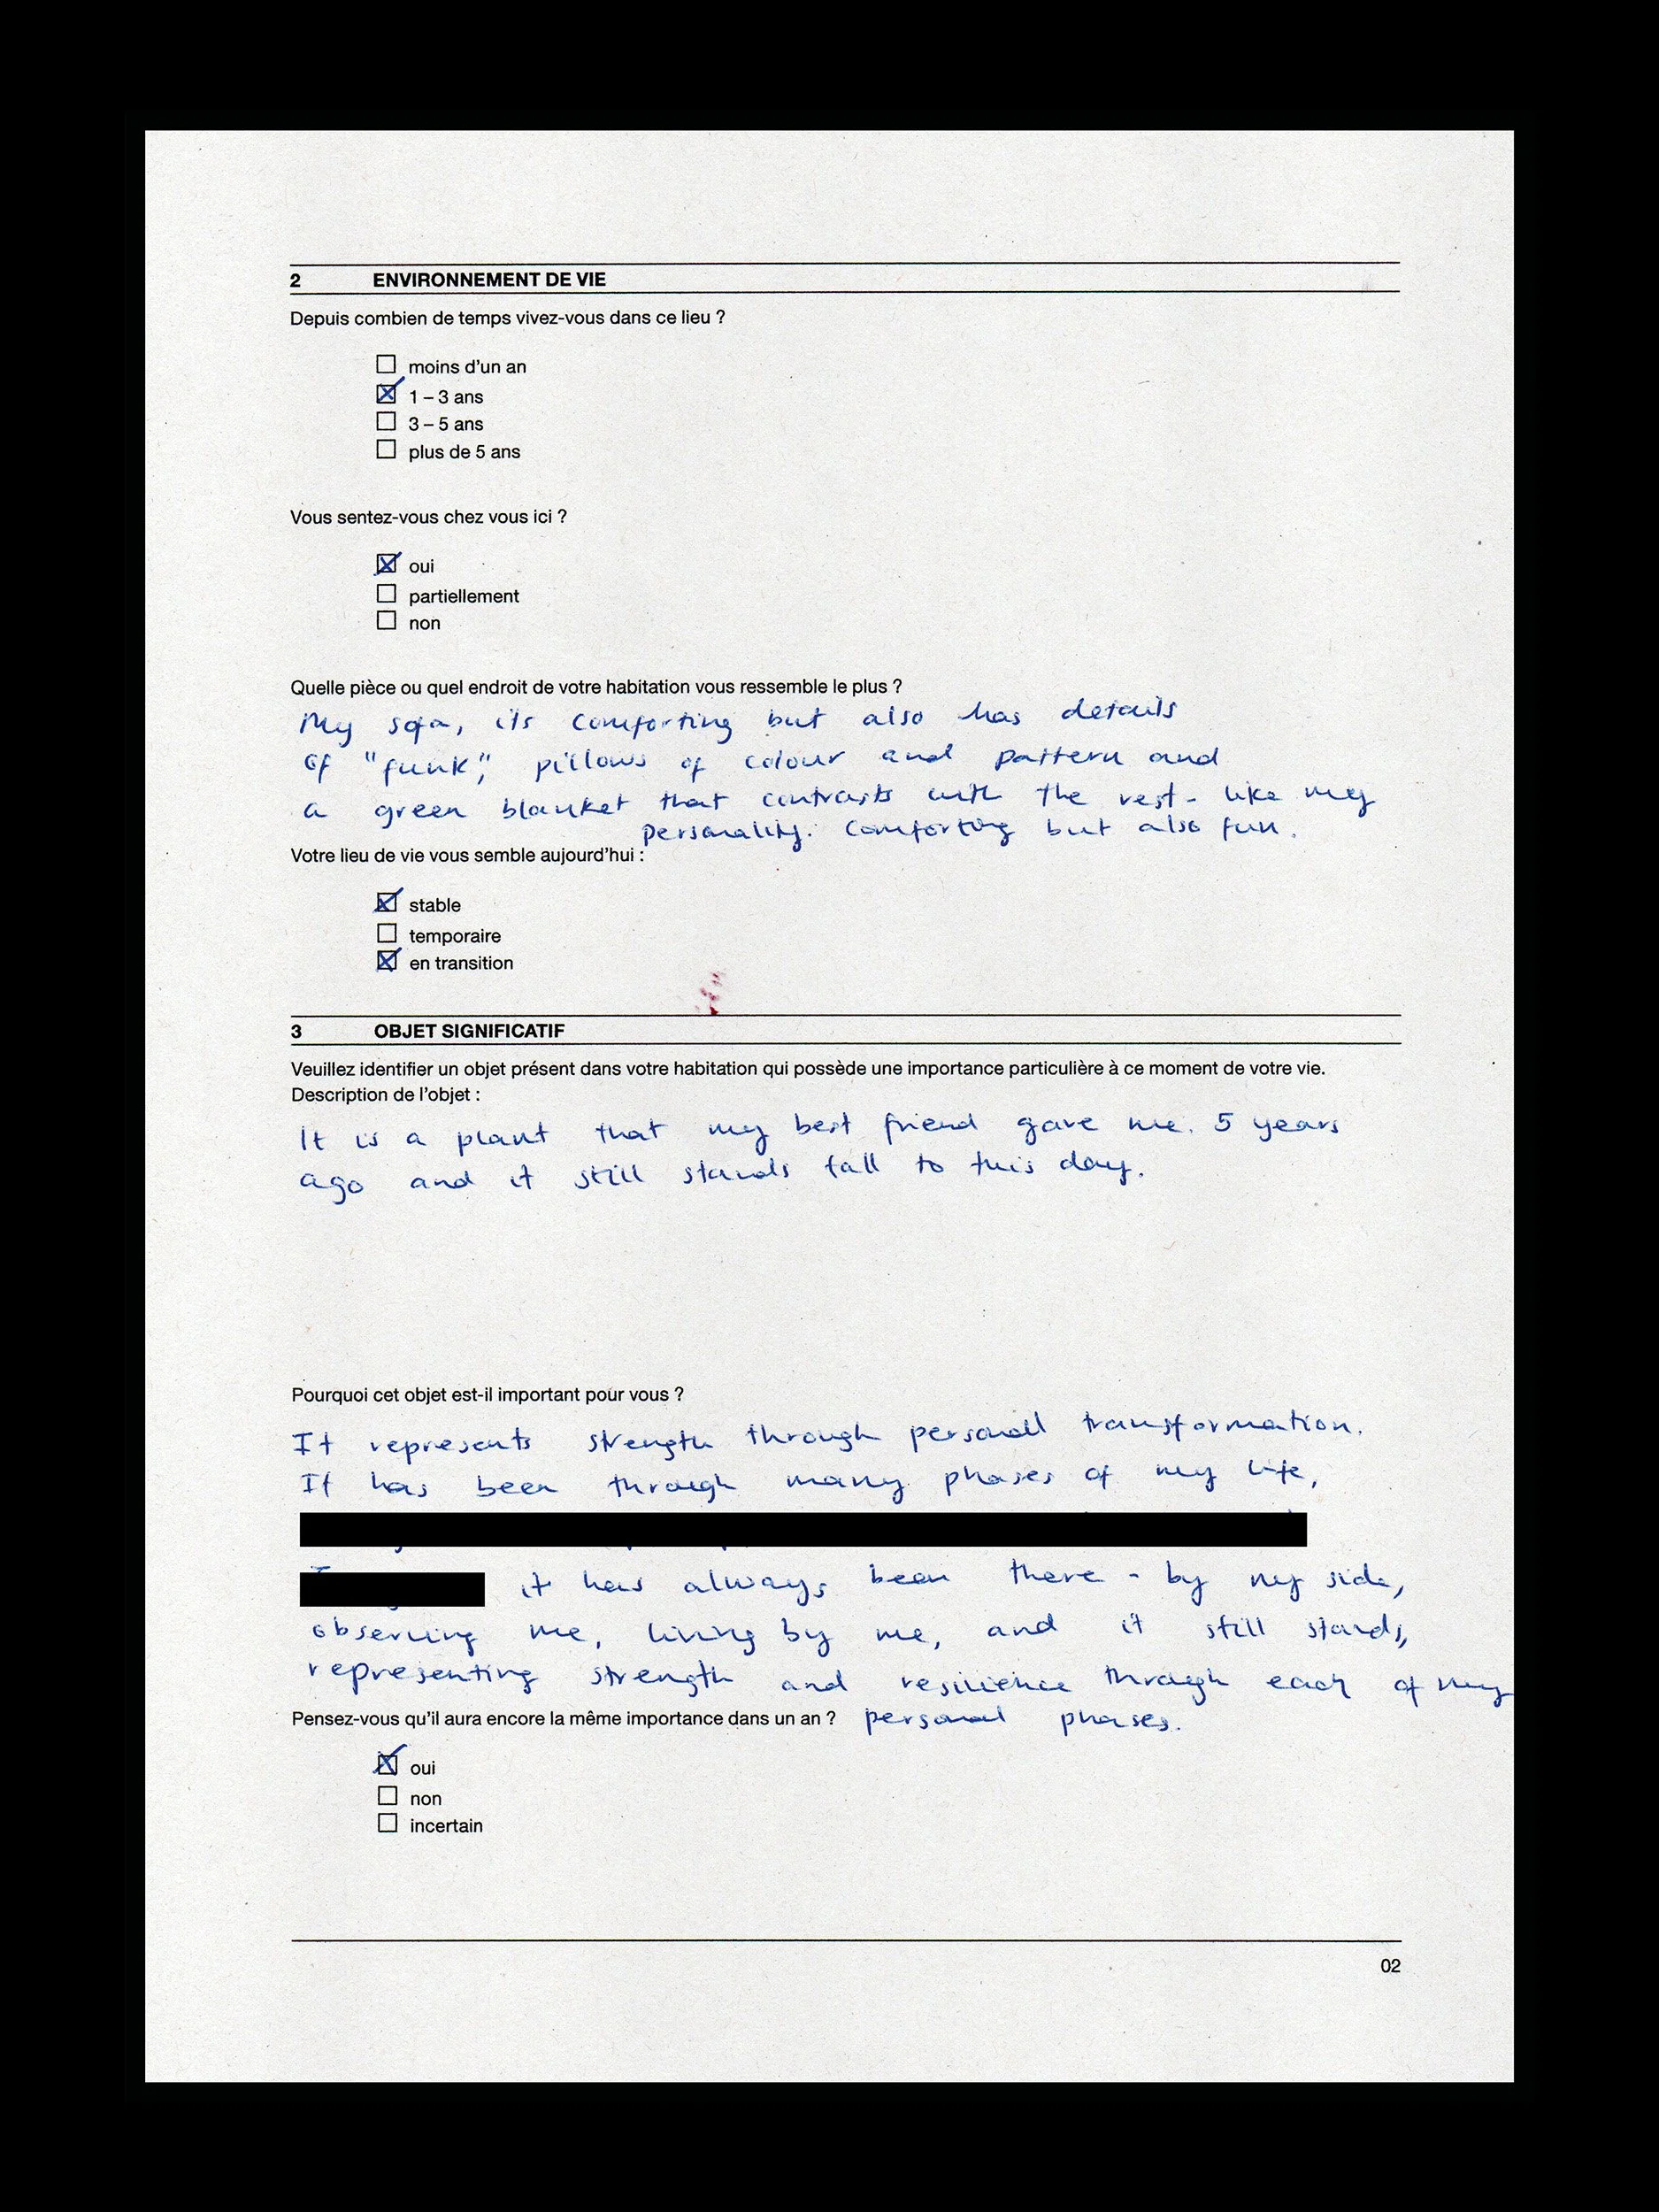 2 ENVIRONNEMENT DE VIE
Depuis combien de temps vivez-vous dans ce lieu ?
moins d'un an
1 – 3 ans
3 – 5 ans
plus de 5 ans
Vous sentez-vous chez vous ici ?
oui
partiellement
non
Quelle pièce ou quel endroit de votre habitation vous ressemble le plus ?
My sofa, its comforting but also has details
of "funk", pillows of colour and pattern and
a green blanket that contrasts with the rest - like my
personality. Comforting but also fun.
Votre lieu de vie vous semble aujourd'hui :
stable
temporaire
en transition
3 OBJET SIGNIFICATIF
Veuillez identifier un objet présent dans votre habitation qui possède une importance particulière à ce moment de votre vie.
Description de l'objet :
It is a plant that my best friend gave me. 5 years
ago and it still stands tall to this day.
Pourquoi cet objet est-il important pour vous ?
It represents strength through personal transformation.
It has been through many phases of my life,
it has always been there - by my side,
observing me, living by me, and it still stands,
representing strength and resilience through each of my
Pensez-vous qu'il aura encore la même importance dans un an ? personal phases.
oui
non
incertain
02